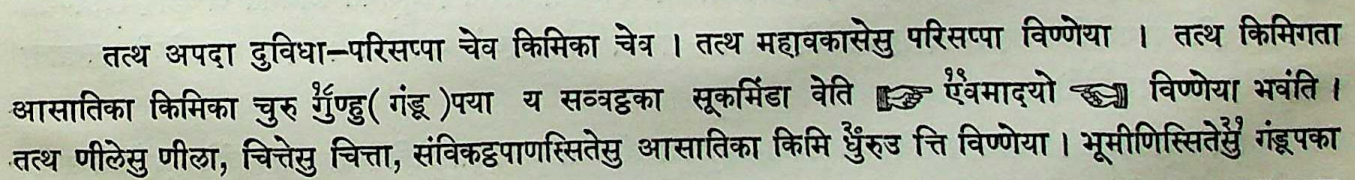 तत्थ अपदा दुविधा–परिसप्पा चेव किमिका चेव । तत्थ महावकासेसु परिसप्पा विण्णेया । तत्थ किमिगता
आसातिका किमिका चुरु १८गुण्हु( गंडू )पया य सव्वट्ठका सूकमिंडा वेति ☞ १९एवमादयो ☜ विण्णेया भवंति ।
तत्थ णीलेसु णीला, चित्तेसु चित्ता, संविकट्ठपाणस्सितेसु आसातिका किमि २०धुरुउ त्ति विण्णेया । भूमीणिस्सितेसु२१ गंडूपका